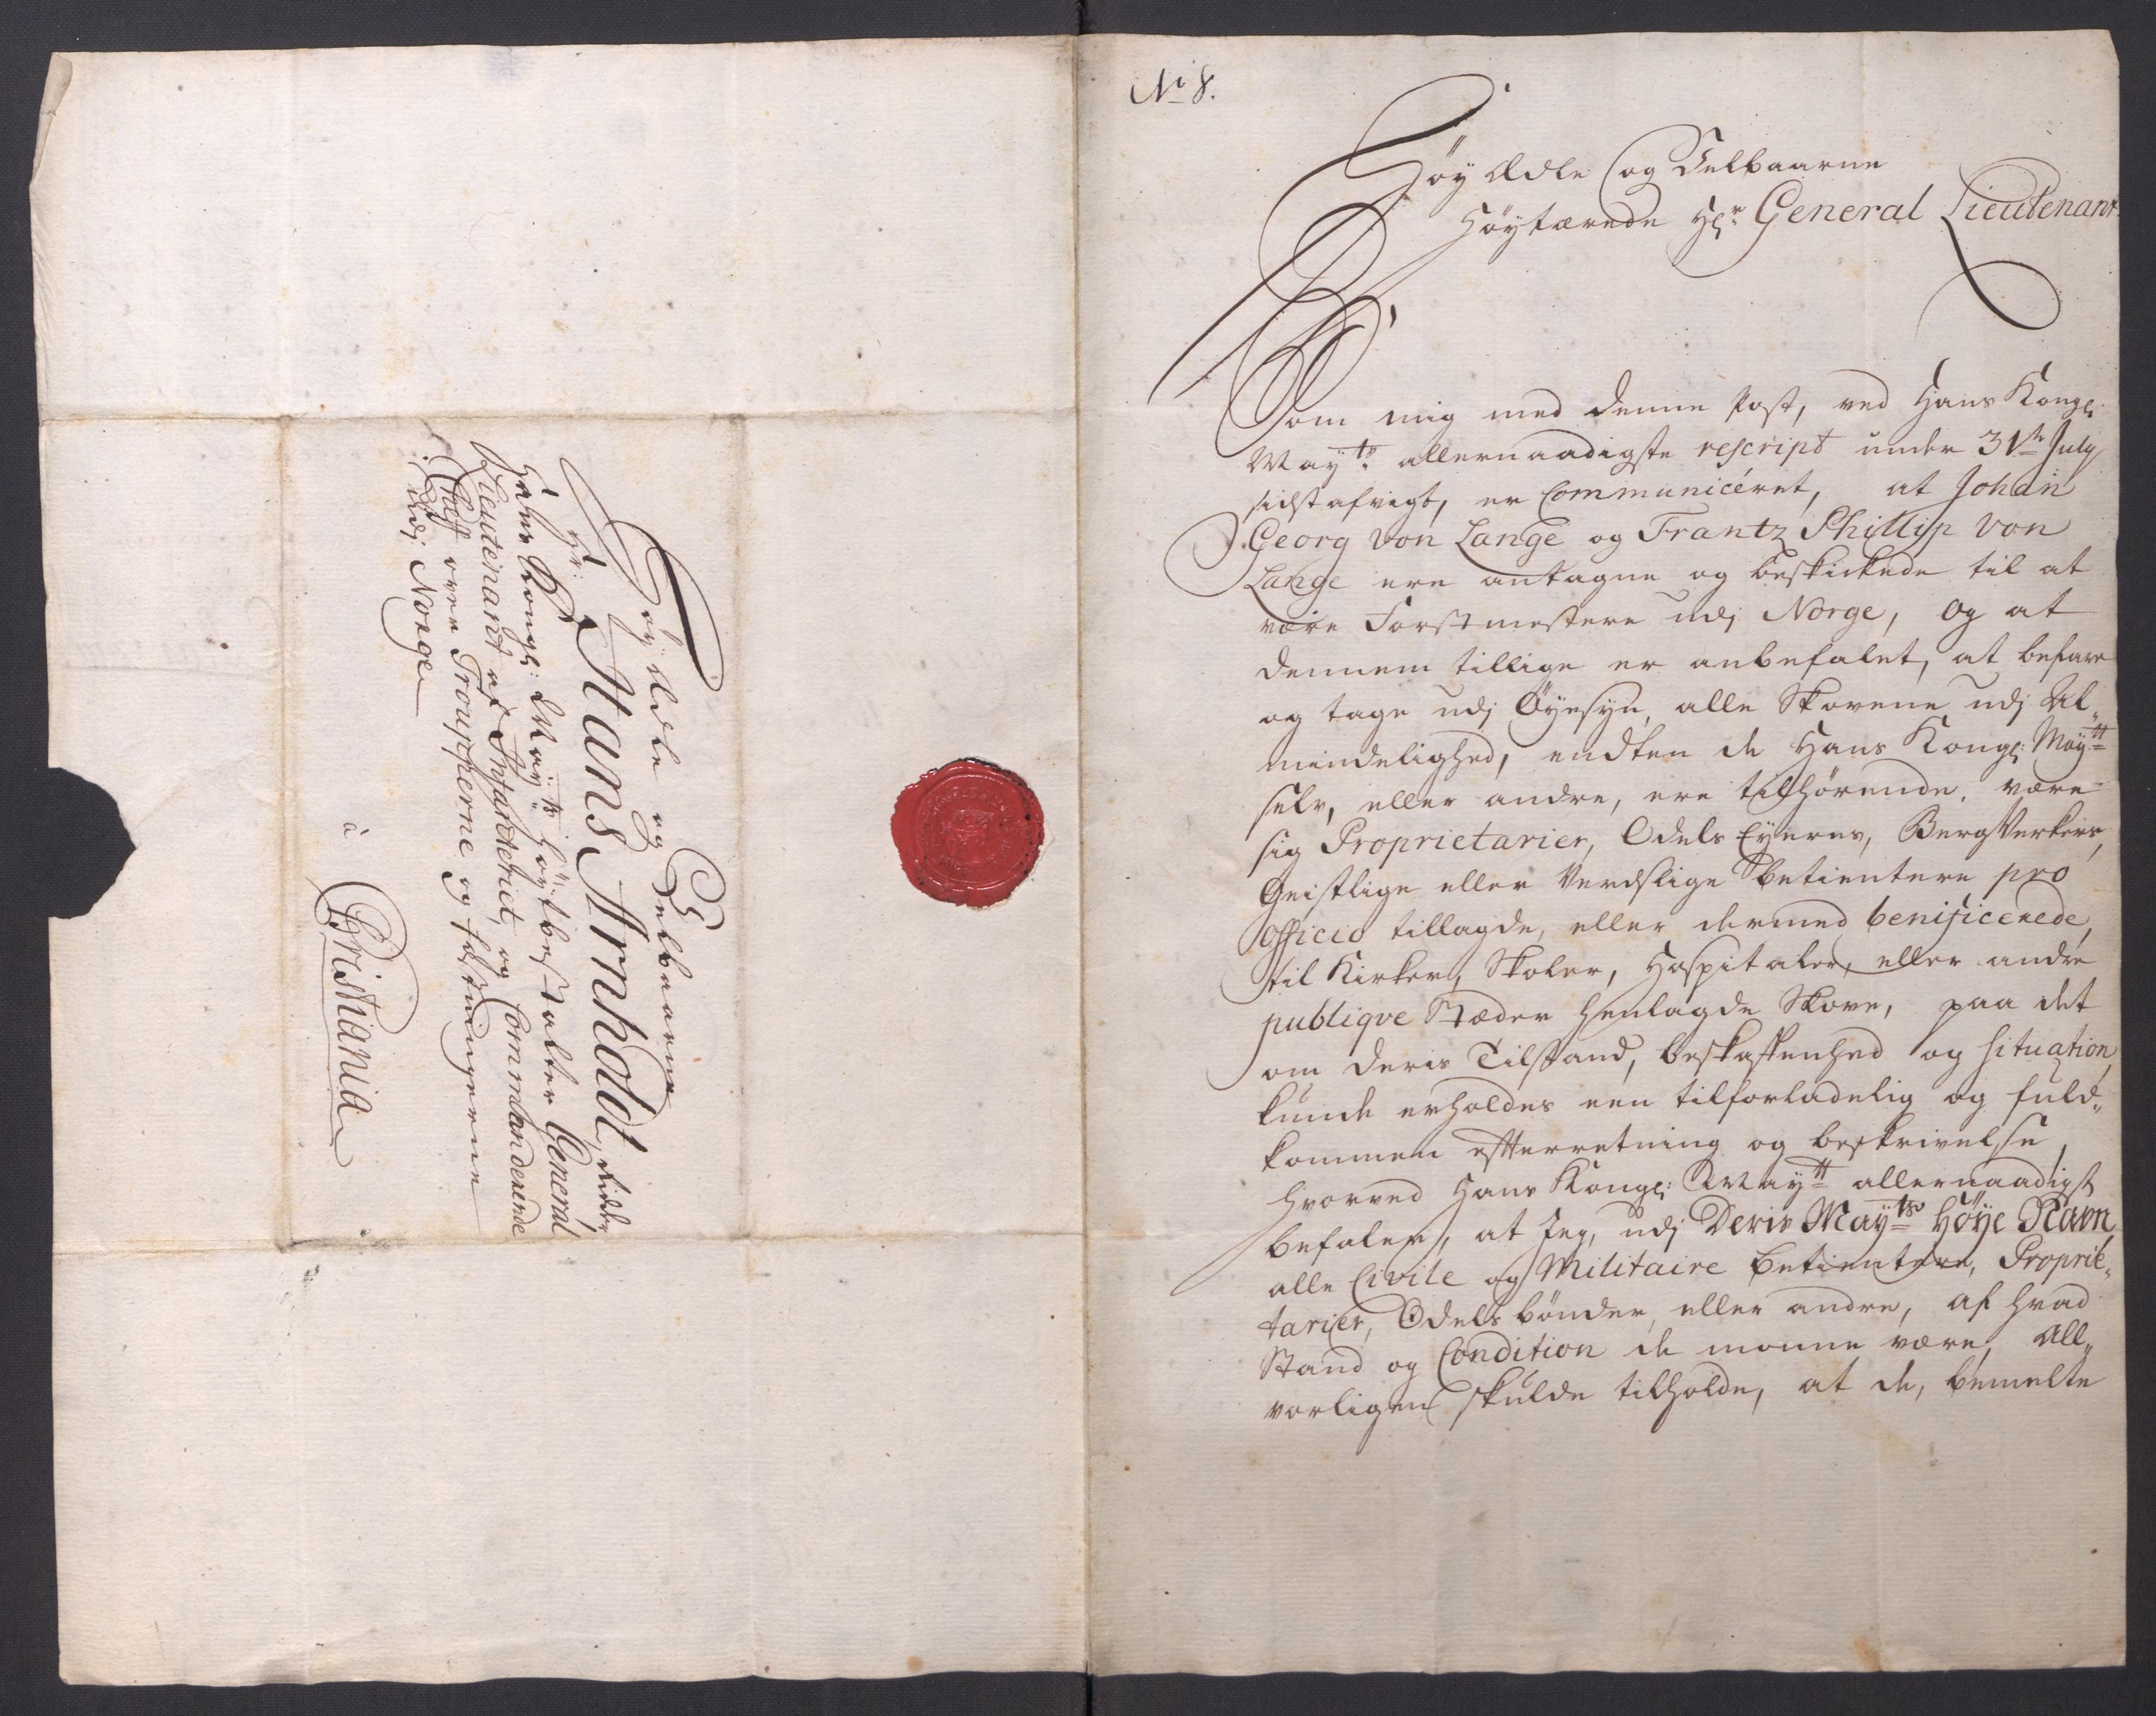 Høy Ædle og Velbaarne
Hr: Hans Arnholdt, Ridder
Hans Kongl: Mayts høytbestalter General
Lieutenant af Infanteriet, og Commanderende
Chef over Troupperne og Fæstningerne
udj Norge
à
Christiania
No 8.
Høy Ædle og Velbaarne
Høytærede Hr. General Lieutenant
Som mig med denne Post, ved Hans Kongl:
Mayts allernaadigste rescript under 31te July
sidstafvigt, er Communiceret, at Johan
Georg von Lange og Frantz Phillip von
Lange ere antagne og beskickede til at
være Forstmestere udj Norge, og at
dennem tillige er anbefalet, at befare
og tage udj Øyesyn, alle Skovene udj Al„
mindelighed, endten de Hans Kongl: Maytt
selv, eller andre, ere tilhørende, være
sig Proprietarier, Odels Eyerns, BergVerkers,
Geistlige eller Verdslige betientere pro
Officio tillagde, eller dermed benificerede,
til Kirker, Skoler, Hospitaler, eller andre
publiqve Stæder henlagde Skove, paa det
om deris Tilstand, beskaffenhed og situation,
kunde erholdes een tilforladelig og fuld„
kommen efterretning og beskrivelse,
hvorved Hans Kongl: Maytt allernaadigst
befaler, at Jeg, udj Deris Mayts Høye Navn,
alle Civile og Militaire betientere, Proprie„
tarier, Odelsbønder, eller andre, af hvad
Stand og Condition de monne være, All„
vorligen skulde tilholde, at de, bemelte